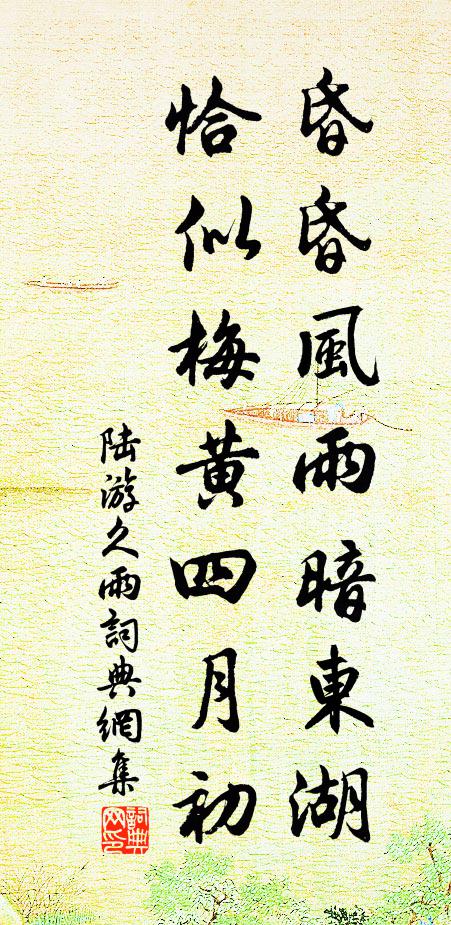 昏昏風雨暗東湖
恰似梅黄四月初
陆游久雨詞典網集
詞典
网印